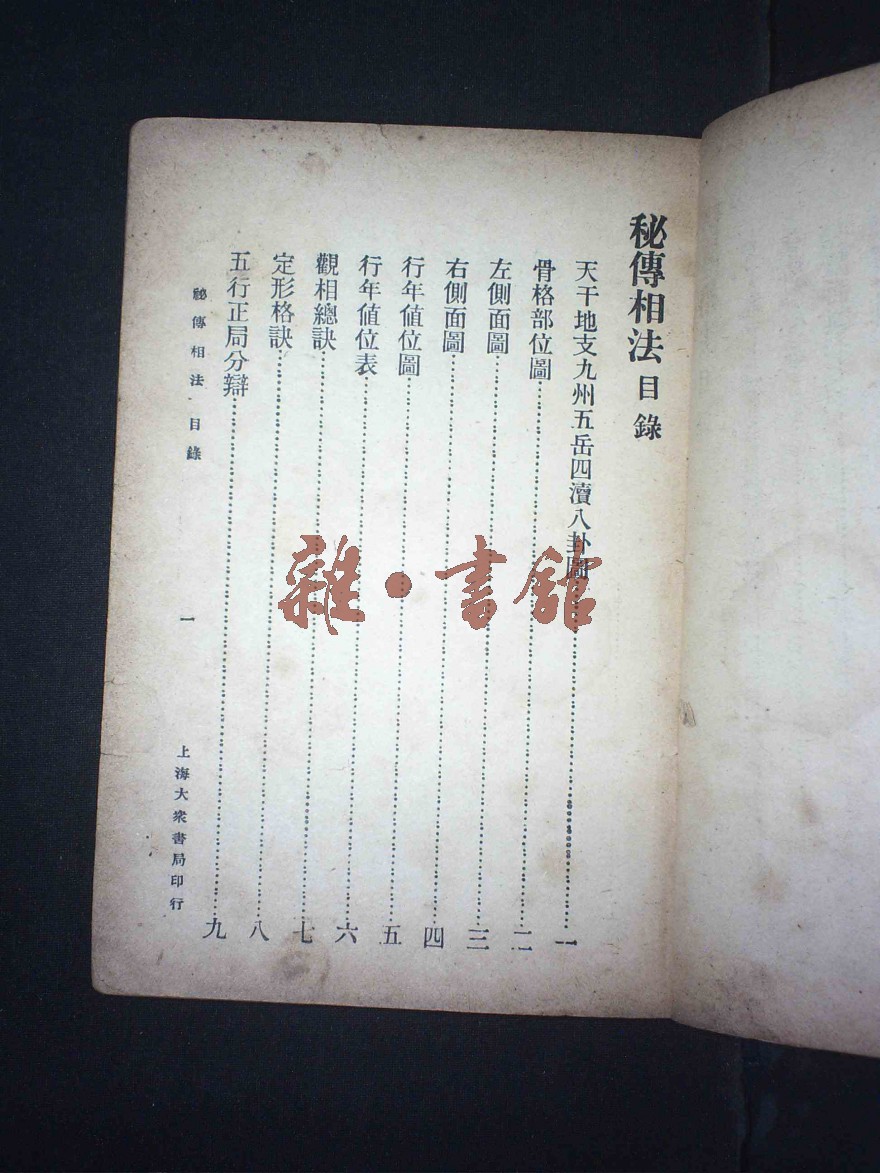 秘傳相法目錄
天干地支九州五岳四瀆八卦圖……一
骨格部位圖……二
左側面圖……三
右側面圖……四
行年値位圖……五
行年値位表……六
觀相總訣……七
定形格訣……八
五行正局分辯……九
祕傳相法 目錄 一 上海大衆書局印行
雜·書館